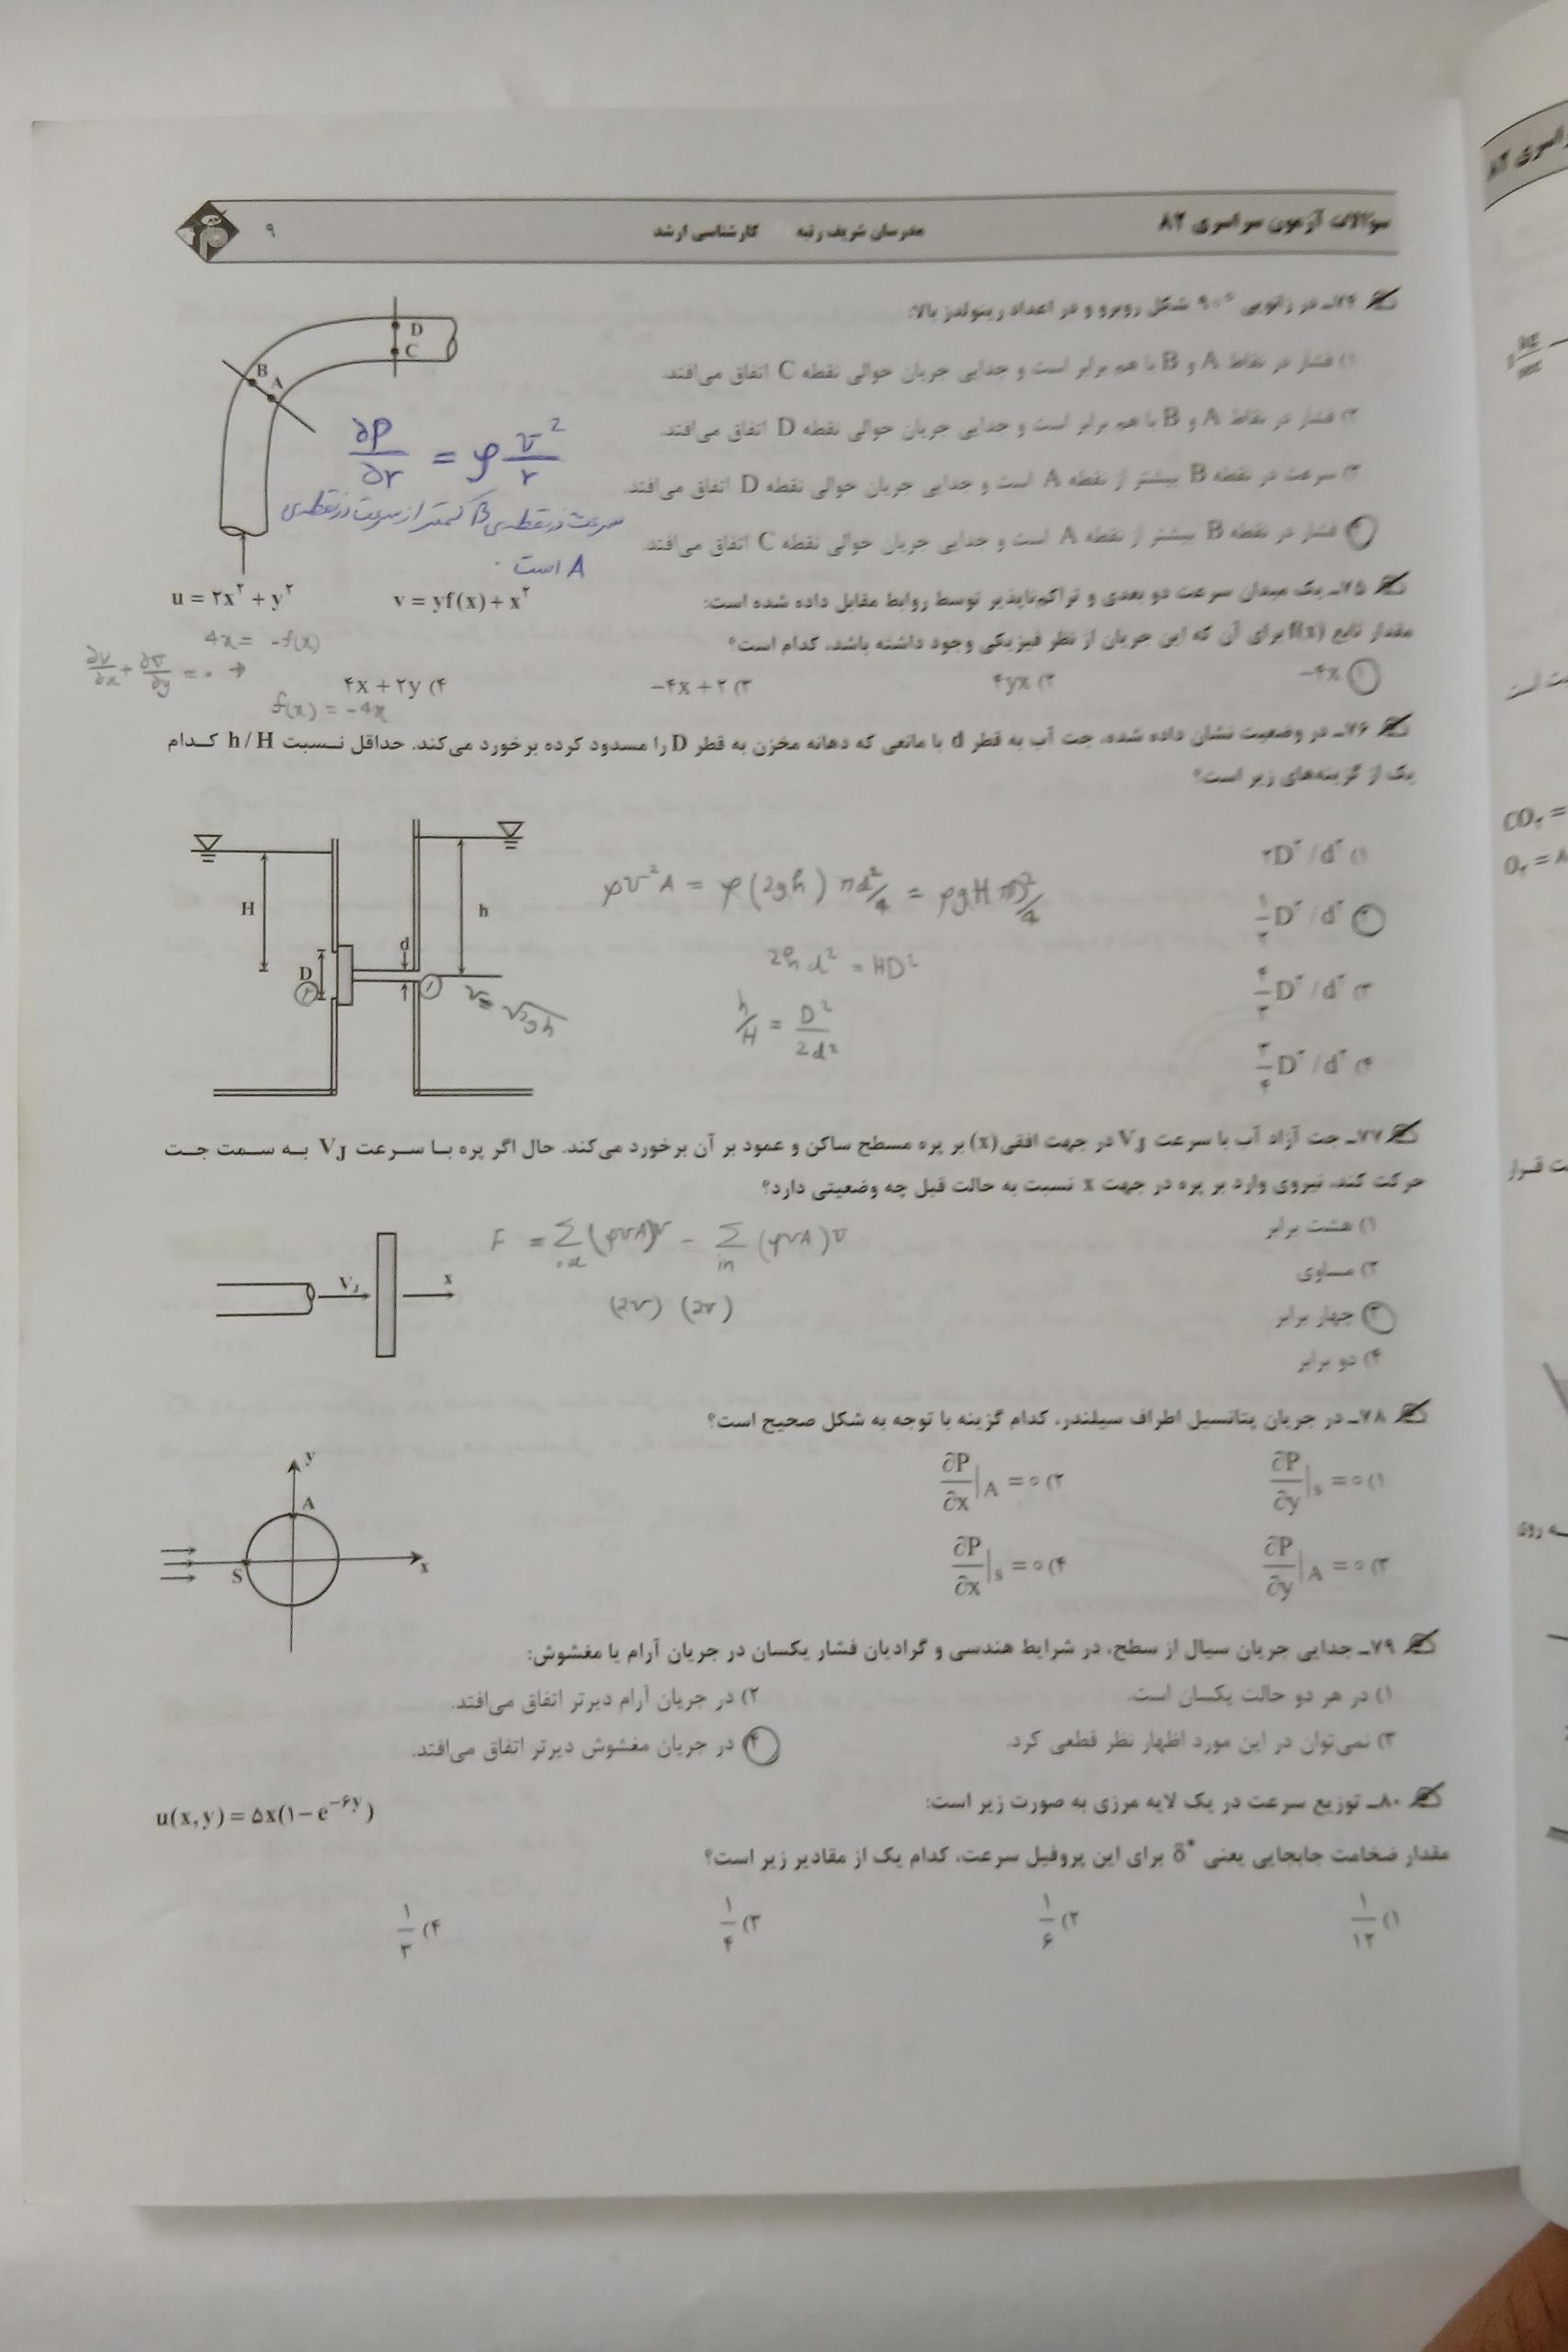 سوالات آزمون سراسری ۸۲
مدرسان شریف رتبه
کارشناسی ارشد
۹
۷۴ـ در زانویی ۹۰° شکل روبرو و در اعداد رینولدز بالا:
۱) فشار در نقاط A و B با هم برابر است و جدایی جریان حوالی نقطه C اتفاق می‌افتد.
۲) فشار در نقاط A و B با هم برابر است و جدایی جریان حوالی نقطه D اتفاق می‌افتد.
۳) سرعت در نقطه B بیشتر از نقطه A است و جدایی جریان حوالی نقطه D اتفاق می‌افتد.
۴) فشار در نقطه B بیشتر از نقطه A است و جدایی جریان حوالی نقطه C اتفاق می‌افتد.
D
C
B
A
∂P/∂r = ρ v²/r
سرعت در نقطه‌ی B کمتر از سرعت در نقطه‌ی
A است.
۷۵ـ یک میدان سرعت دو بعدی و تراکم‌ناپذیر توسط روابط مقابل داده شده است:
u = ۲x² + y² v = yf(x) + x²
مقدار تابع f(x) برای آن که این جریان از نظر فیزیکی وجود داشته باشد، کدام است؟
۱) −۴x
۲) ۴yx
۳) −۴x + ۲
۴) ۴x + ۲y
4x = -f(x)
∂u/∂x + ∂v/∂y = 0 →
f(x) = -4x
۷۶ـ در وضعیت نشان داده شده، جت آب به قطر d با مانعی که دهانه مخزن به قطر D را مسدود کرده برخورد می‌کند. حداقل نسبت h/H کدام
یک از گزینه‌های زیر است؟
۱) ۲D²/d²
۲) ۱/۲ D²/d²
۳) ۴/۳ D²/d²
۴) ۳/۴ D²/d²
H
h
D
d
۲
۱
v = √2gh
ρv²A = ρ(2gh) πd²/4 = ρgH πD²/4
2h d² = HD²
h/H = D²/2d²
۷۷ـ جت آزاد آب با سرعت VJ در جهت افقی (x) بر پره مسطح ساکن و عمود بر آن برخورد می‌کند. حال اگر پره با سرعت VJ به سمت جت
حرکت کند، نیروی وارد بر پره در جهت x نسبت به حالت قبل چه وضعیتی دارد؟
۱) هشت برابر
۲) مساوی
۳) چهار برابر
۴) دو برابر
VJ
x
F = Σout (ρvA)v − Σin (ρvA)v
(2v) (2v)
۷۸ـ در جریان پتانسیل اطراف سیلندر، کدام گزینه با توجه به شکل صحیح است؟
۱) ∂P/∂y |s = ۰
۲) ∂P/∂x |A = ۰
۳) ∂P/∂y |A = ۰
۴) ∂P/∂x |s = ۰
y
A
S
x
۷۹ـ جدایی جریان سیال از سطح، در شرایط هندسی و گرادیان فشار یکسان در جریان آرام یا مغشوش:
۱) در هر دو حالت یکسان است.
۲) در جریان آرام دیرتر اتفاق می‌افتد.
۳) نمی‌توان در این مورد اظهار نظر قطعی کرد.
۴) در جریان مغشوش دیرتر اتفاق می‌افتد.
۸۰ـ توزیع سرعت در یک لایه مرزی به صورت زیر است:
u(x,y) = ۵x(۱ − e^−۶y)
مقدار ضخامت جابجایی یعنی δ* برای این پروفیل سرعت، کدام یک از مقادیر زیر است؟
۱) ۱/۱۲
۲) ۱/۶
۳) ۱/۴
۴) ۱/۳
CO₂ =